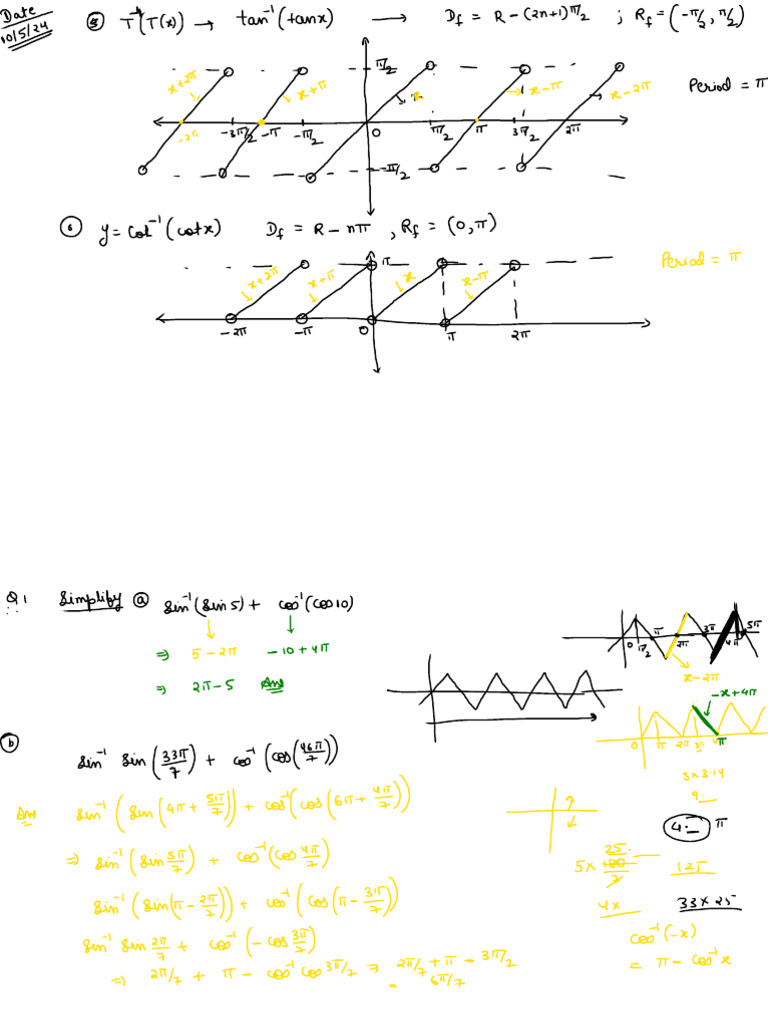 Date
10/5/24
⑤ T⁻¹(T(x)) → tan⁻¹(tanx) → Df = R-(2n+1)π/2 ; Rf = (-π/2, π/2)
π/2
x+2π x+π x x-π x-2π
Period = π
-2π -3π/2 -π -π/2 0 π/2 π 3π/2 2π
-π/2
⑥ y = cot⁻¹(cotx) Df = R - nπ , Rf = (0, π)
Period = π
π
x+2π x+π x x-π
-2π -π 0 π 2π
Q1 Simplify ⓐ sin⁻¹(sin5) + cos⁻¹(cos10)
⇒ 5-2π -10+4π
⇒ 2π-5 Ans
0 π/2 π 2π 3π 4π 5π
x-2π
-x+4π
0 π 2π 3π 4π
3x3.14
9.
4. π
ⓑ sin⁻¹ sin(33π/7) + cos⁻¹(cos(46π/7))
Ans sin⁻¹(sin(4π + 5π/7)) + cos⁻¹(cos(6π + 4π/7))
⇒ sin⁻¹(sin 5π/7) + cos⁻¹(cos 4π/7)
sin⁻¹(sin(π - 2π/7)) + cos⁻¹(cos(π - 3π/7))
sin⁻¹ sin 2π/7 + cos⁻¹(-cos 3π/7)
⇒ 2π/7 + π - cos⁻¹ cos 3π/7 ⇒ 2π/7 + π - 3π/2
= 6π/7
25
5x 180/7
125
4x
33x25
cos⁻¹(-x)
= π - cos⁻¹x